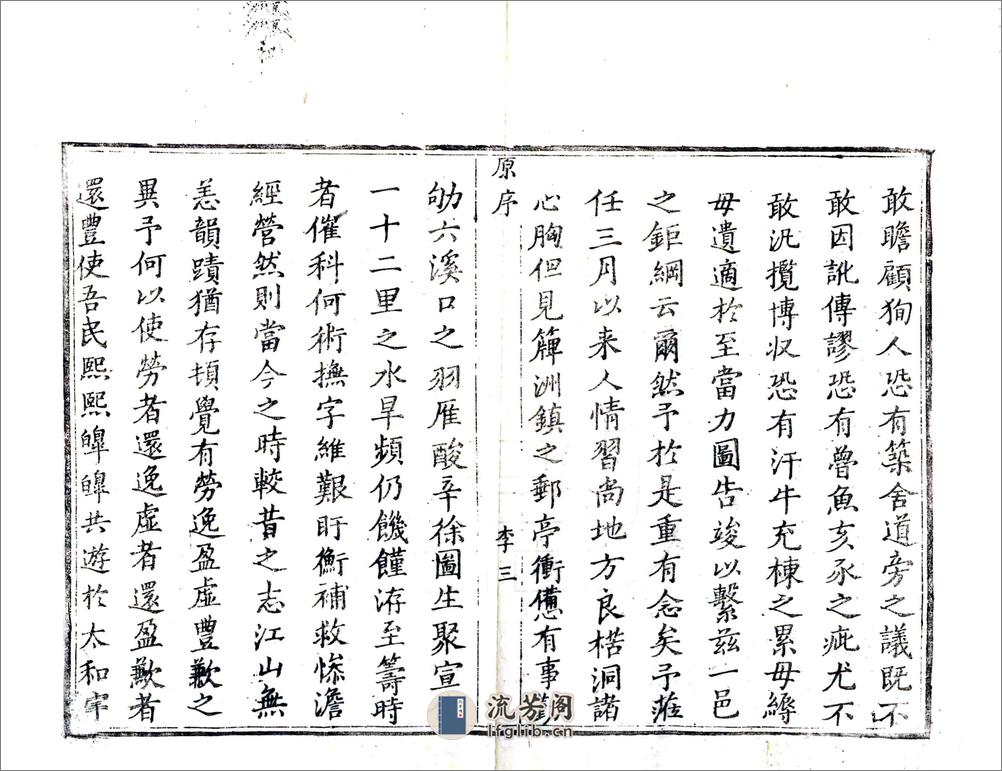 敢瞻顧狥人恐有築舍道旁之議既不
敢因訛傳謬恐有魯魚亥豕之疵尤不
敢汎攬博收恐有汗牛充棟之累毋縟
毋遺適於至當力圖告竣以繫兹一邑
之鉅綱云爾然予於是重有念矣予蒞
任三月以来人情習尚地方良楛洞諸
心胸但見簰洲鎮之郵亭衝憊有事
原序
李三
劬六溪口之羽雁酸辛徐圖生聚宣
一十二里之水旱頻仍饑饉洊至籌時
者催科何術撫字維艱盱衡補救慘澹
經營然則當今之時較昔之志江山無
恙韻蹟猶存頓覺有勞逸盈虛豐歉之
異予何以使勞者還逸虛者還盈歉者
還豐使吾民熙熙皥皥共遊於太和宇
流芳阁
lfglib.cn